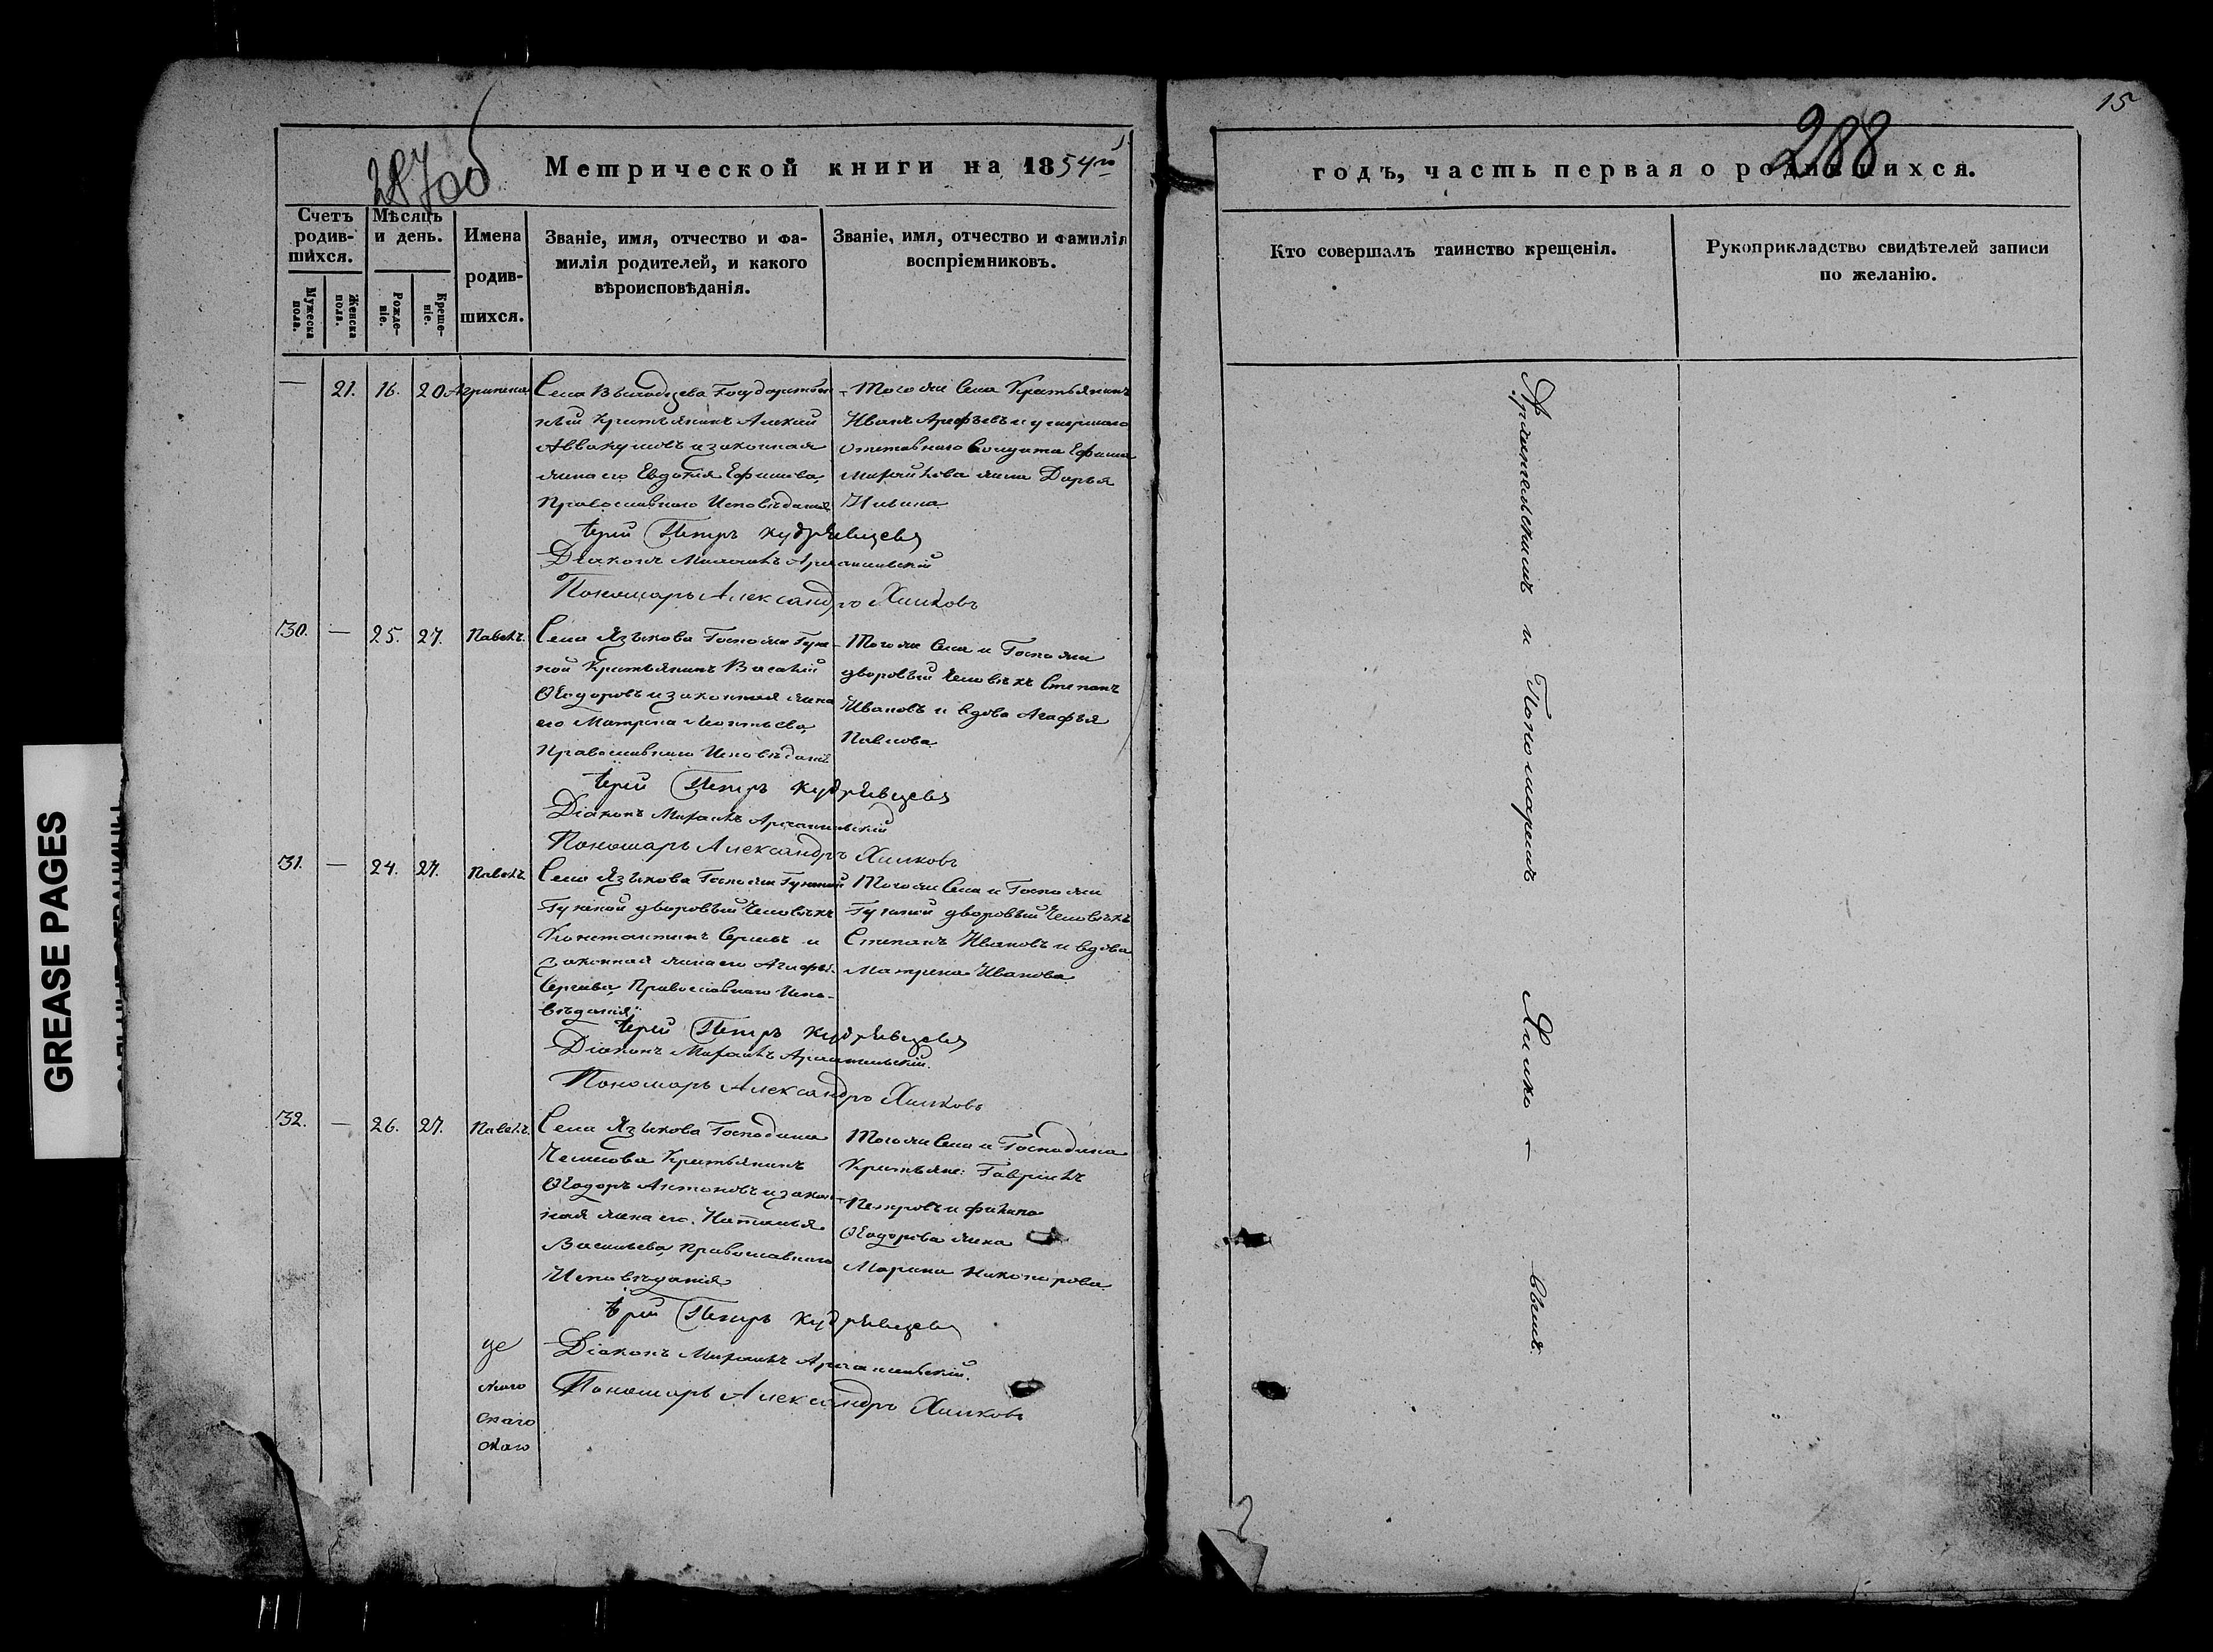 287об
Метрической книги на 1854го
Счетъ родив-шихся.
Мѣсяцъ и день.
Имена родив-шихся.
Званіе, имя, отчество и фа-
милія родителей, и какого
вѣроисповѣданія.
Званіе, имя, отчество и фамилія
воспріемниковъ.
Мужеска пола.
Женска пола.
Рожде-ніе.
Креще-ніе.
— 21. 16. 20
Села Государствен-
ный Крестьянинъ Алексѣй
Аввакумовъ и законная
жена его Евдокія Ефимова,
Православнаго Исповѣданія
Того же Села Крестьянинъ
Иванъ Арефьевъ и умершаго
отставнаго Солдата Ефима
жена Дарья
Ильина
Іерей Петръ Кудрявцевъ
Діаконъ Михаилъ Архангельскій
Пономарь Александръ Хилковъ
30. — 25. 27. Павелъ.
Села Языкова Госпожи
Крестьянинъ Василій
Ѳеодоровъ и законная жена
его Матрена Леонтьева,
Православнаго Исповѣданія.
Того же Села и Госпожи
дворовый человѣкъ Степанъ
Ивановъ и вдова Агафья
Павлова
Іерей Петръ Кудрявцевъ
Діаконъ Михаилъ Архангельскій
Пономарь Александръ Хилковъ
31. — 24. 27. Павелъ
Село Языкова Госпожи
дворовый Человѣкъ
Константинъ Сергѣевъ и
законная жена его
Сергѣева, Православнаго Испо-
вѣданія
Того же Села и Госпожи
дворовый Человѣкъ
Степанъ Ивановъ и вдова
Матрена Иванова
Іерей Петръ Кудрявцевъ
Діаконъ Михаилъ Архангельскій.
Пономарь Александръ Хилковъ
32. — 26. 27. Павелъ.
Села Языкова Господина
Крестьянинъ
Ѳеодоръ Антоновъ и закон-
ная жена его Наталья
Васильева, Православнаго
Исповѣданія
Того же Села и Господина
Крестьяне: Гавріилъ
Петровъ и Филипа
Ѳеодорова жена
Марина Никонорова
Іерей Петръ Кудрявцевъ
Діаконъ Михаилъ Архангельскій.
Пономарь Александръ Хилковъ
15
288
годъ, часть первая о родившихся.
Кто совершалъ таинство крещенія.
Рукоприкладство свидѣтелей записи
по желанію.
Архангельскимъ и Пономаремъ Хилко – вымъ.
GREASE PAGES